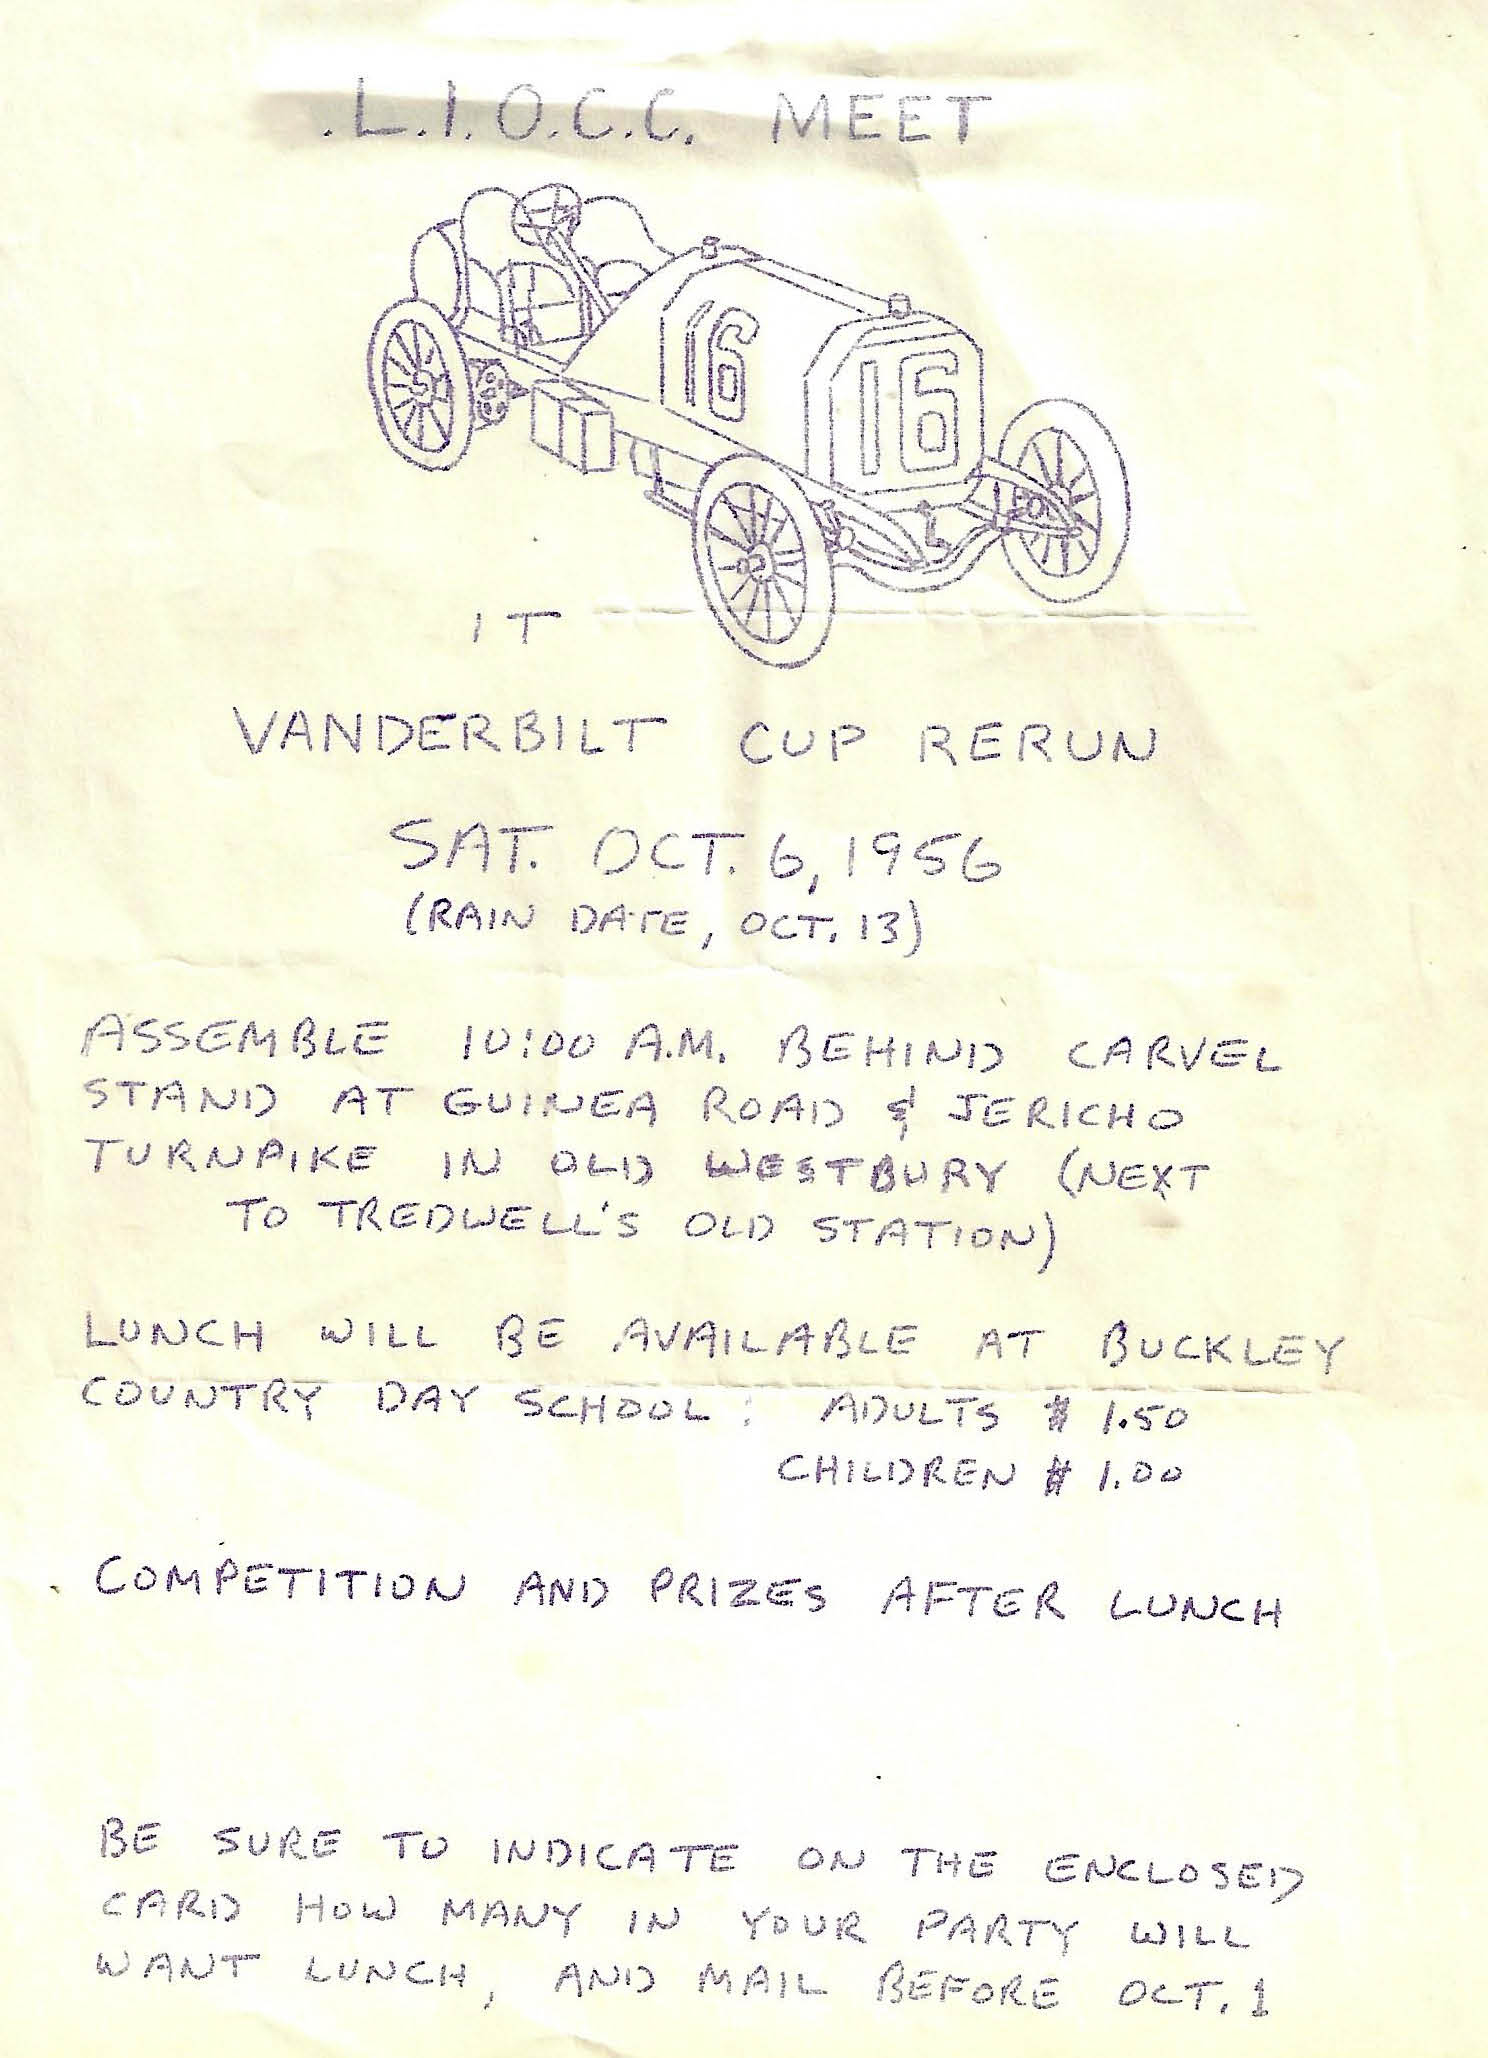 .L.I.O.C.C. MEET
16
16
IT
VANDERBILT CUP RERUN
SAT. OCT. 6, 1956
(RAIN DATE, OCT. 13)
ASSEMBLE 10:00 A.M. BEHIND CARVEL
STAND AT GUINEA ROAD & JERICHO
TURNPIKE IN OLD WESTBURY (NEXT
TO TREDWELL'S OLD STATION)
LUNCH WILL BE AVAILABLE AT BUCKLEY
COUNTRY DAY SCHOOL: ADULTS $1.50
CHILDREN $1.00
COMPETITION AND PRIZES AFTER LUNCH
BE SURE TO INDICATE ON THE ENCLOSED
CARD HOW MANY IN YOUR PARTY WILL
WANT LUNCH, AND MAIL BEFORE OCT. 1